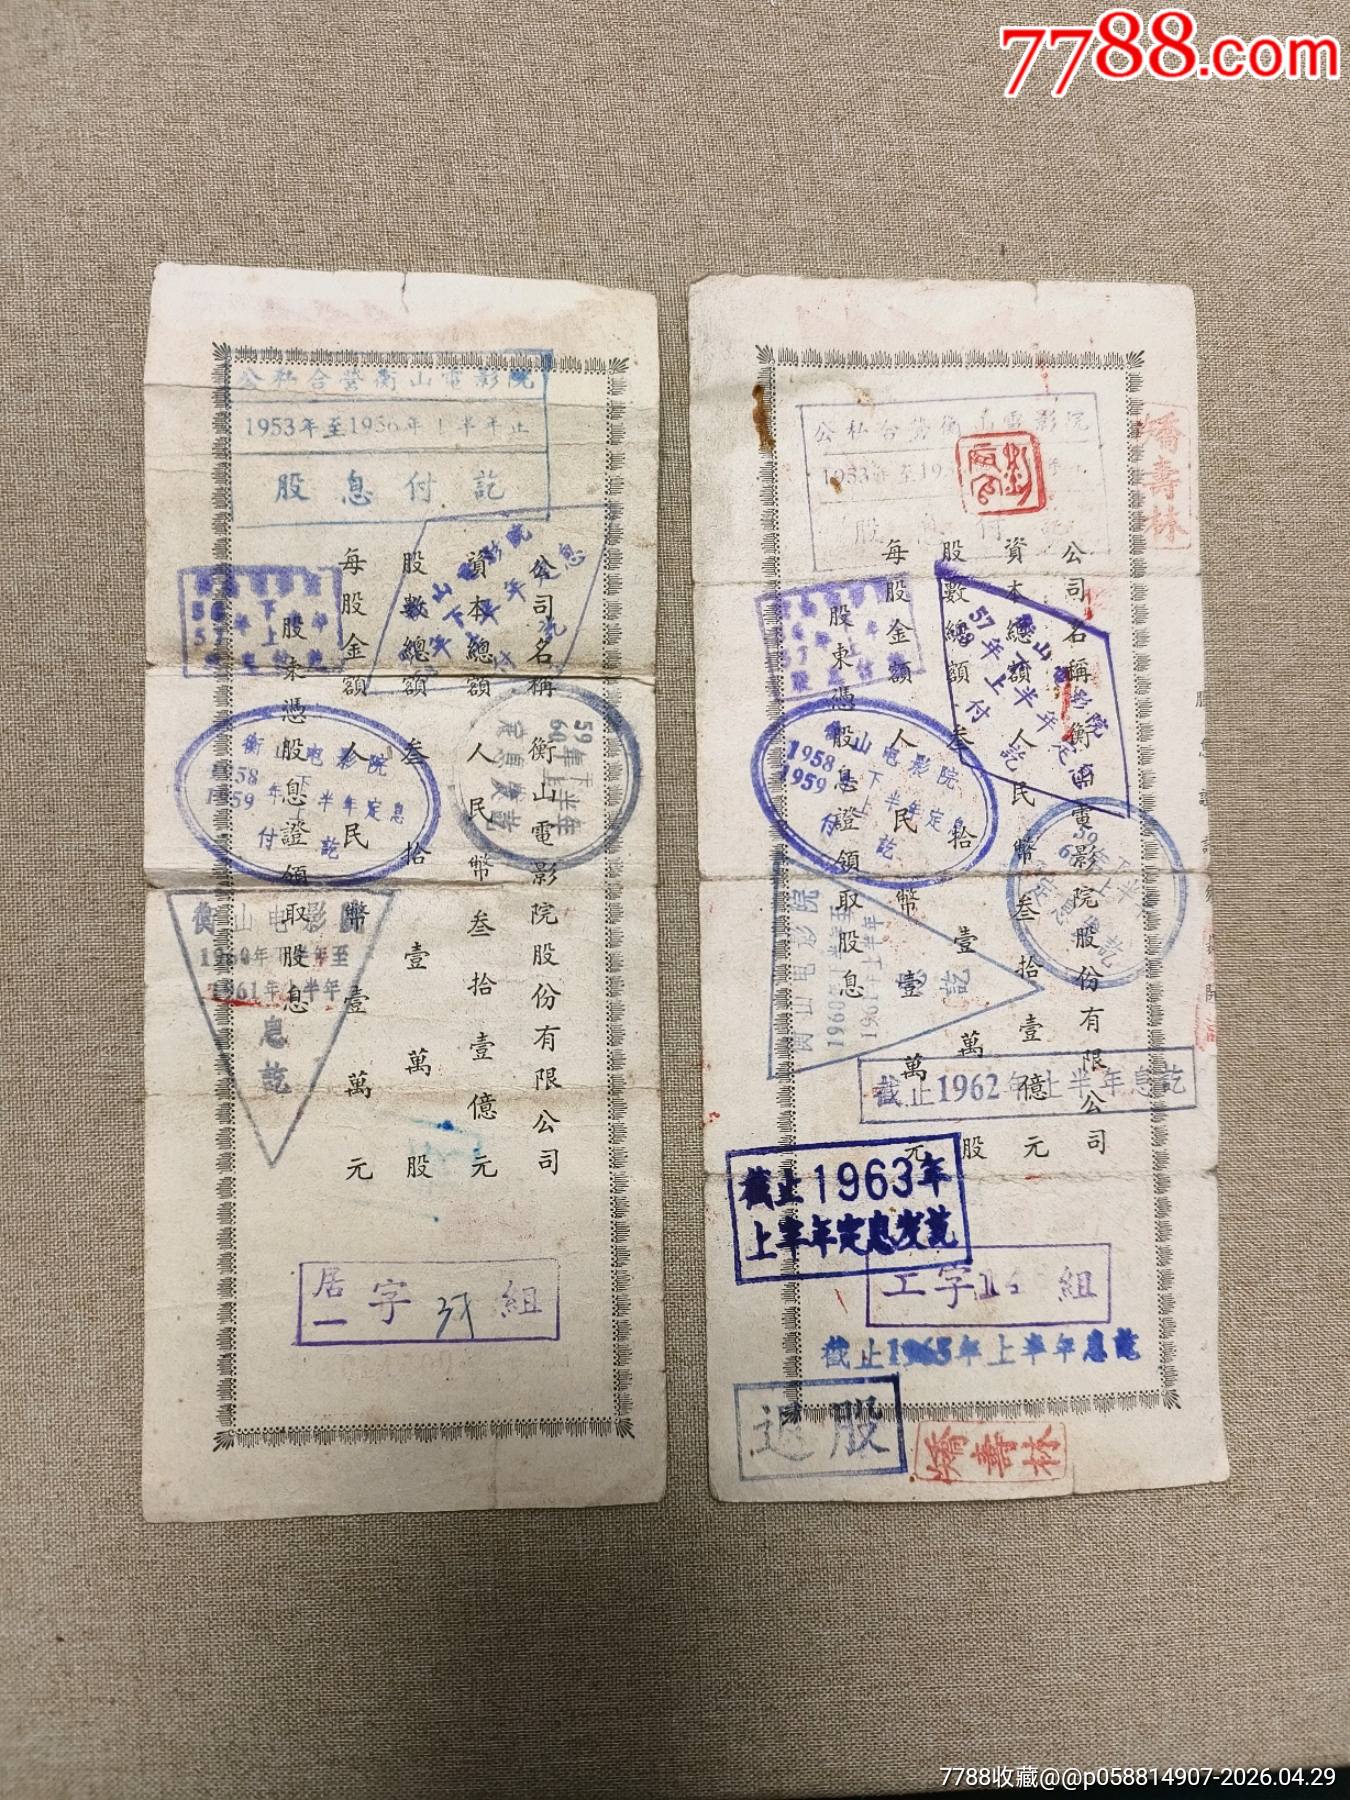 7788.com
公私合營衡山電影院
1953年至1956年上半年止
股息付訖
公司名稱 衡山電影院股份有限公司
資本總額 人民幣叁拾壹億元
股數總額 叁拾壹萬股
每股金額 人民幣壹萬元
股東憑股息證領取股息
衡山电影院
1958年下半年定息
1959 上
付訖
59年下半年
60年上
定息發訖
衡山电影院
1960年下半年至
1961年上半年
息訖
居一字 組
公私合營衡山電影院
1953年至195
股息付訖
公司名稱 衡山電影院股份有限公司
資本總額 人民幣叁拾壹億元
股數總額 叁拾壹萬股
每股金額 人民幣壹萬元
股東憑股息證領取股息
57年下半年定息
58年上付訖
衡山电影院
1958年下半年定息
1959 上
付訖
山电影院
1960年下半年至
1961年上半年
息訖
截止1962年上半年息訖
截止1963年
上半年定息发訖
工字 組
截止1965年上半年息訖
退股
喬壽林
喬壽林
7788收藏@@p058814907-2026.04.29